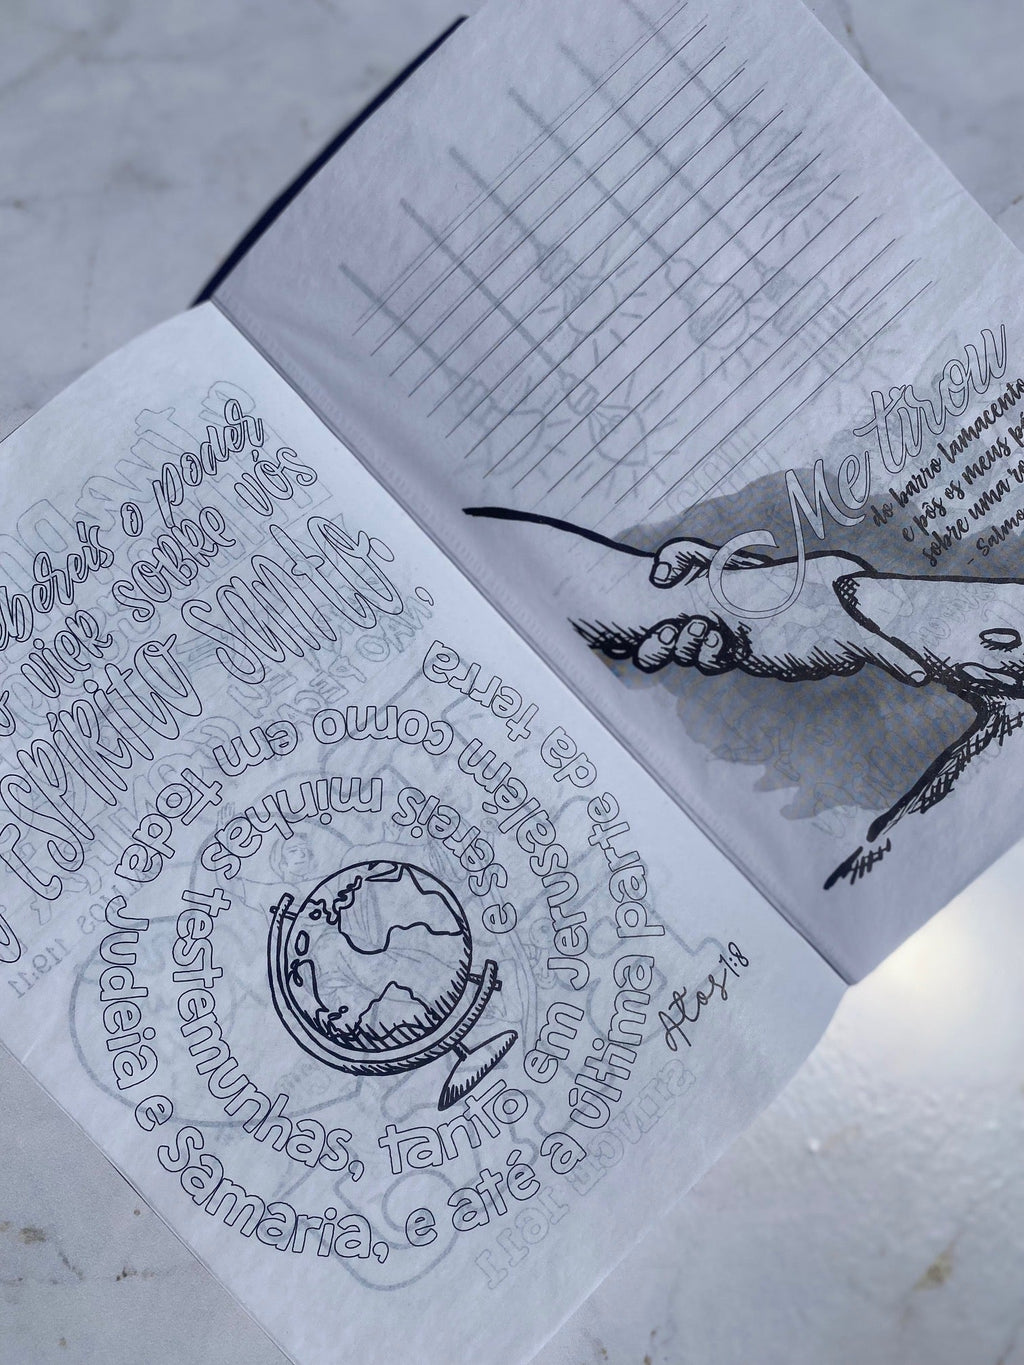 o poder
vier sobre vós
Espírito Santo,
e sereis minhas testemunhas, tanto em Jerusalém como em toda Judeia e Samaria, e até a última parte da terra
Atos 1:8
Me tirou
do barro lamacento
e pôs os meus
sobre uma
- Salmo